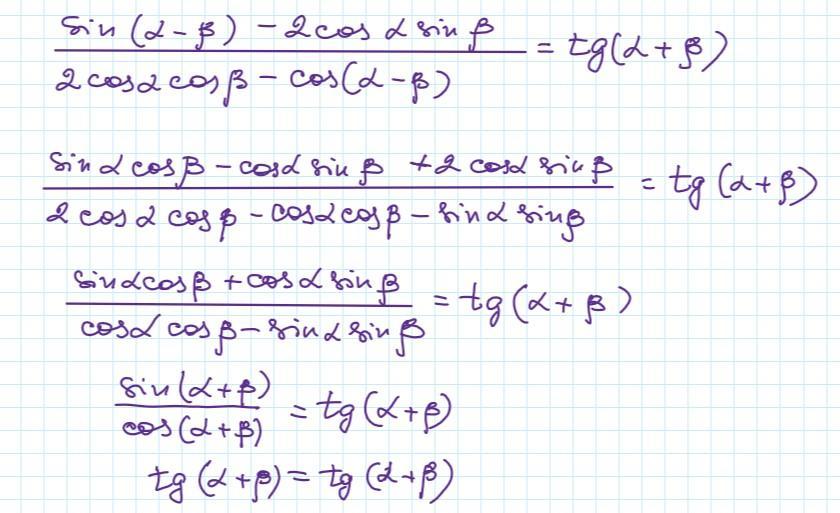 sin(α-β) - 2cos α sin β / 2cosα cosβ - cos(α-β) = tg(α+β)
sinα cosβ - cosα sin β + 2 cosα sin β / 2 cos α cos β - cosα cosβ - sinα sinβ = tg(α+β)
sinαcosβ + cosα sin β / cosα cos β - sinα sin β = tg(α+β)
sin(α+β) / cos(α+β) = tg(α+β)
tg(α+β) = tg(α+β)